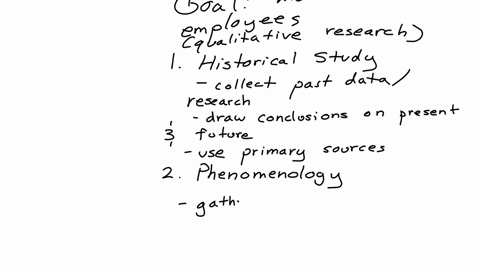 Goal:
employees
(qualitative research)
1. Historical Study
- collect past data/
research
- draw conclusions on present
& future
- use primary sources
2. Phenomenology
- gath